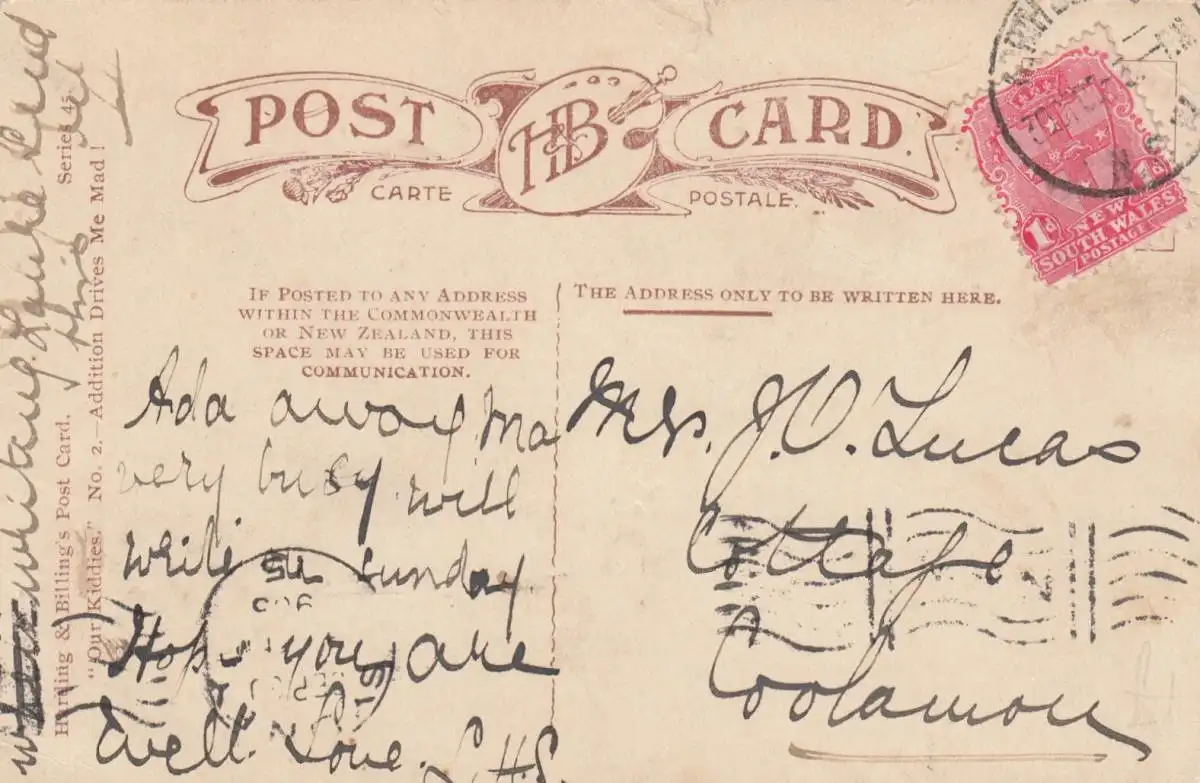 POST CARD.
HB
CARTE POSTALE.
IF POSTED TO ANY ADDRESS
WITHIN THE COMMONWEALTH
OR NEW ZEALAND, THIS
SPACE MAY BE USED FOR
COMMUNICATION.
THE ADDRESS ONLY TO BE WRITTEN HERE.
1d
NEW
SOUTH WALES
POSTAGE
N.S.W
Ada away Ma
very busy will
write on Sunday
Hope you are
well. Love. L.H.S.
Mrs. J. O. Lucas
Cottage
Coolamon
Harding & Billing's Post Card. Series 45.
"Our Kiddies." No. 2.—Addition Drives Me Mad!
this